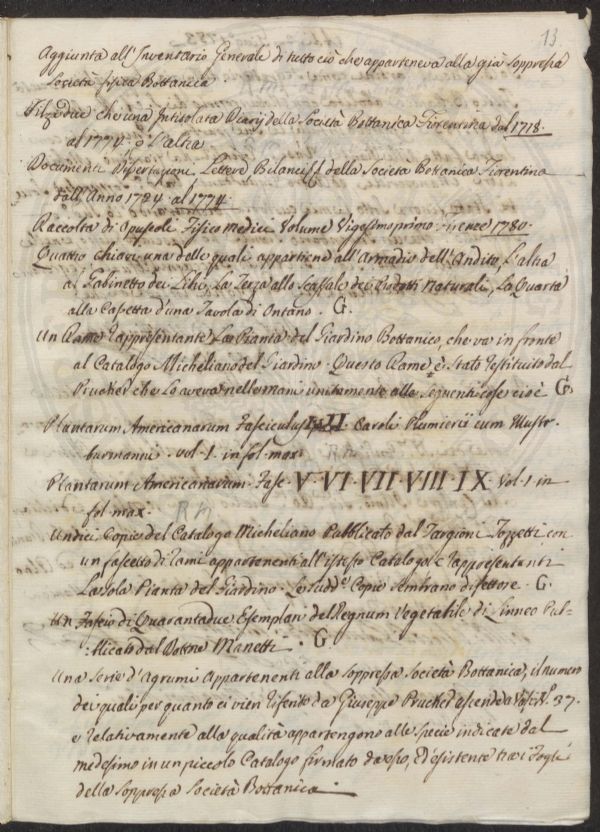 13.
Aggiunta all'Inventario Generale di tutto ciò che apparteneva alla già Soppressa
Società fisica Bottanica
Filze due che una Intitolata Diarj della Società Bottanica Fiorentina dal 1718.
al 1774. e L'altra
Documenti Dissertazioni Lettere Bilanci della Società Bottanica Fiorentina
dall'Anno 1734 al 1774
Raccolta di Opuscoli Fisico medici Volume Vigesimoprimo Firenze 1780.
Quattro chiavi una delle quali appartiene all'Armadio dell'Andito, L'altra
al Gabinetto dei Libri, La Terza allo Scaffale dei Prodotti Naturali, La Quarta
alla Cassetta d'una Tavola di Ontano. G.
Un Rame rappresentante La Pianta del Giardino Bottanico, che va in fronte
al Catalogo Micheliano del Giardino. Questo Rame è stato restituito dal
Prucker che Lo aveva nelle mani unitamente alle seguenti cose cioè G.
Plantarum Americanarum Fasciculus II. Caroli Plumerii cum Illustr.
burmanni. vol. 1. in fol. max.
Plantarum Americanarum. Fasc. V. VI. VII. VIII. IX. Vol. 1 in
fol. max.
Undici Copie del Catalogo Micheliano Pubblicato dal Targioni Tozzetti con
un fascetto di rami appartenenti all'istesso Catalogo e rappresentanti
La sola Pianta del Giardino. Le sudde Copie sembrano difettose. G.
Un Fascio di Quarantadue Esemplari del Regnum Vegetabile di Linneo Pub-
:blicato dal Dottore Manetti. G.
Una Serie d'Agrumi Appartenenti alla soppressa Società Bottanica, il numero
dei quali per quanto ci vien riferito da Giuseppe Prucker ascende a Vasi N.° 37.
e relativamente alla qualità appartengono alle specie indicate dal
medesimo in un piccolo Catalogo firmato da esso, ed esistente tra i Fogli
della soppressa Società Bottanica.